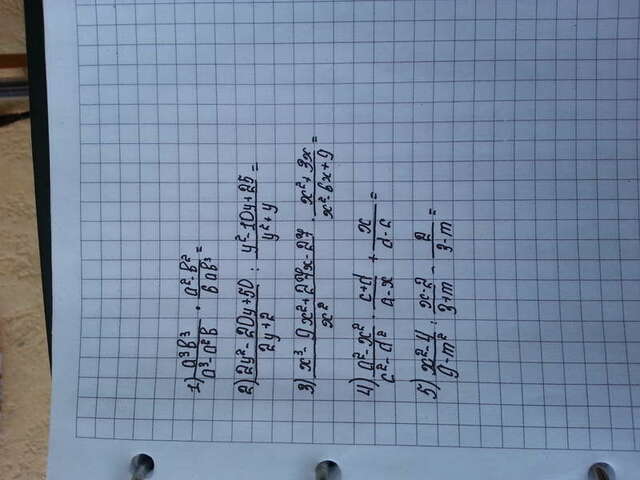 1) a³b³ / a³-a²b · a²-b² / 6ab³ =
2) 2y²-20y+50 / 2y+2 : y²-10y+25 / y²+y =
3) x³-9x²+27x-27 / x² · x²+3x / x²-6x+9 =
4) a²-x² / c²-d² · c+d / a-x + x / d-c =
5) x²-4 / 9-m² : x-2 / 3+m - 2 / 3-m =